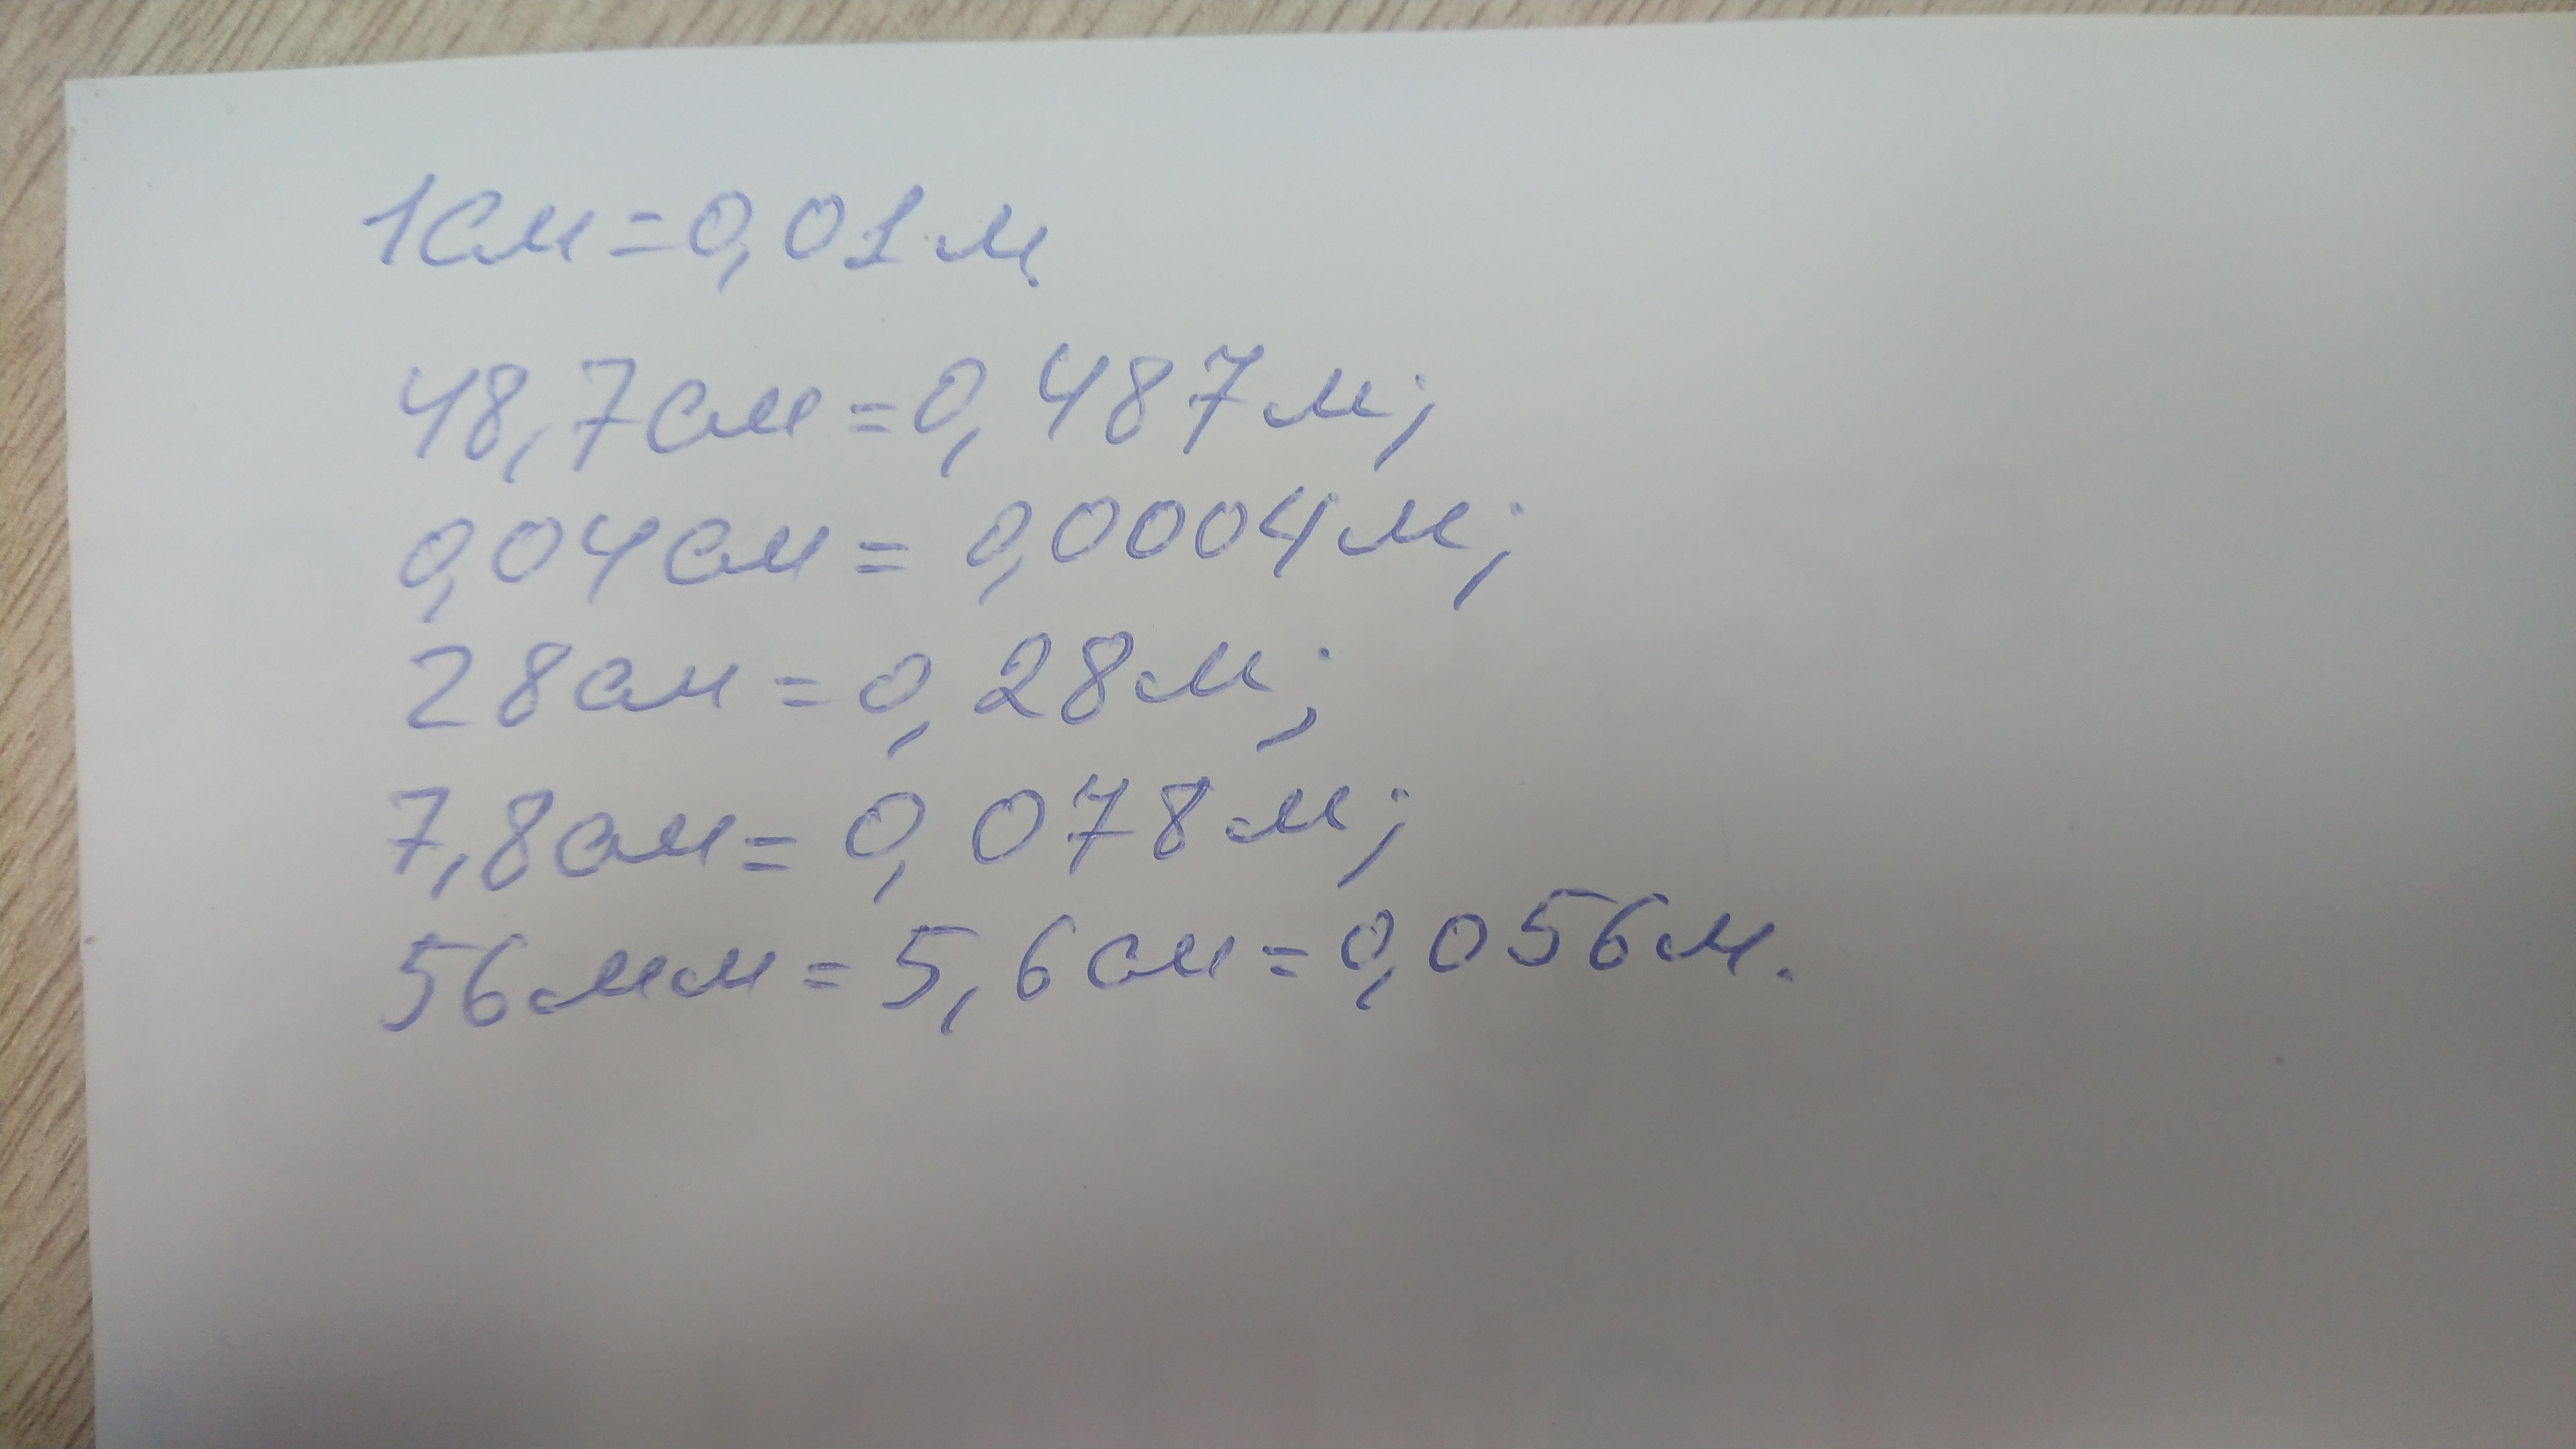 1см=0,01м
48,7см=0,487м;
0,04см=0,0004м;
28см=0,28м;
7,8см=0,078м;
56мм=5,6см=0,056м.